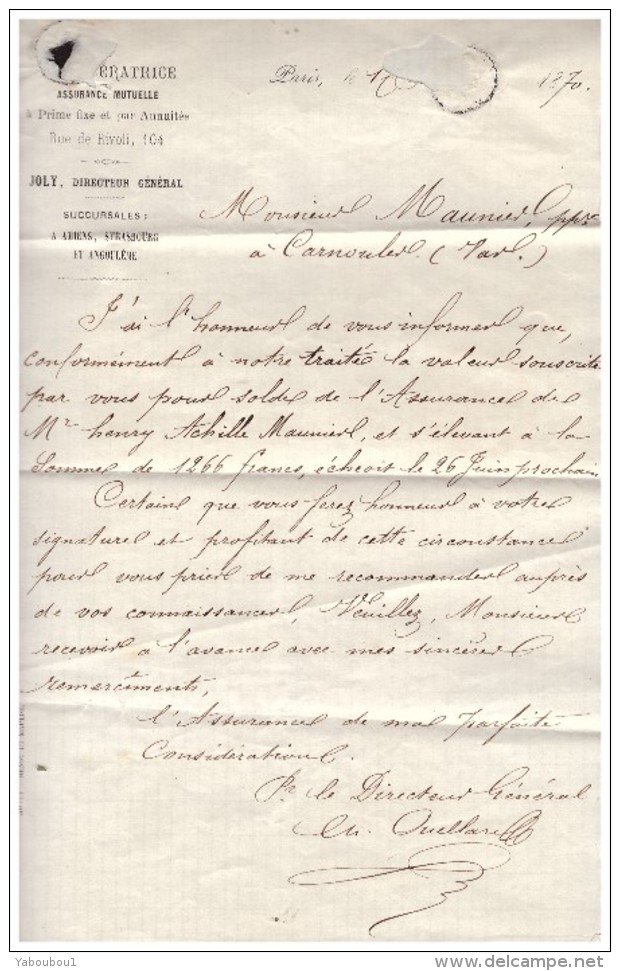 ÉRATRICE
ASSURANCE MUTUELLE
à Prime fixe et par Annuités
Rue de Rivoli, 104
JOLY, DIRECTEUR GÉNÉRAL
SUCCURSALES:
A AMIENS, STRASBOURG
ET ANGOULÊME
Paris, le 1870.
Monsieur Maunier, ppre
à Carnoules (Var.)
J'ai l'honneur de vous informer que,
conformément à notre traité la valeur souscrite
par vous pour solde de l'Assurance de
Mr henry Achille Maunier, et s'élevant à la
Somme de 1266 francs, échoit le 26 Juin prochain
Certain que vous ferez honneur à votre
signature et profitant de cette circonstance
pour vous prier de me recommander auprès
de vos connaissances, Veuillez, Monsieur
recevoir à l'avance avec mes sincères
remerciments,
l'Assurance de ma parfaite
Considération.
Pr le Directeur Général
Yaboubou1
delcampe.net